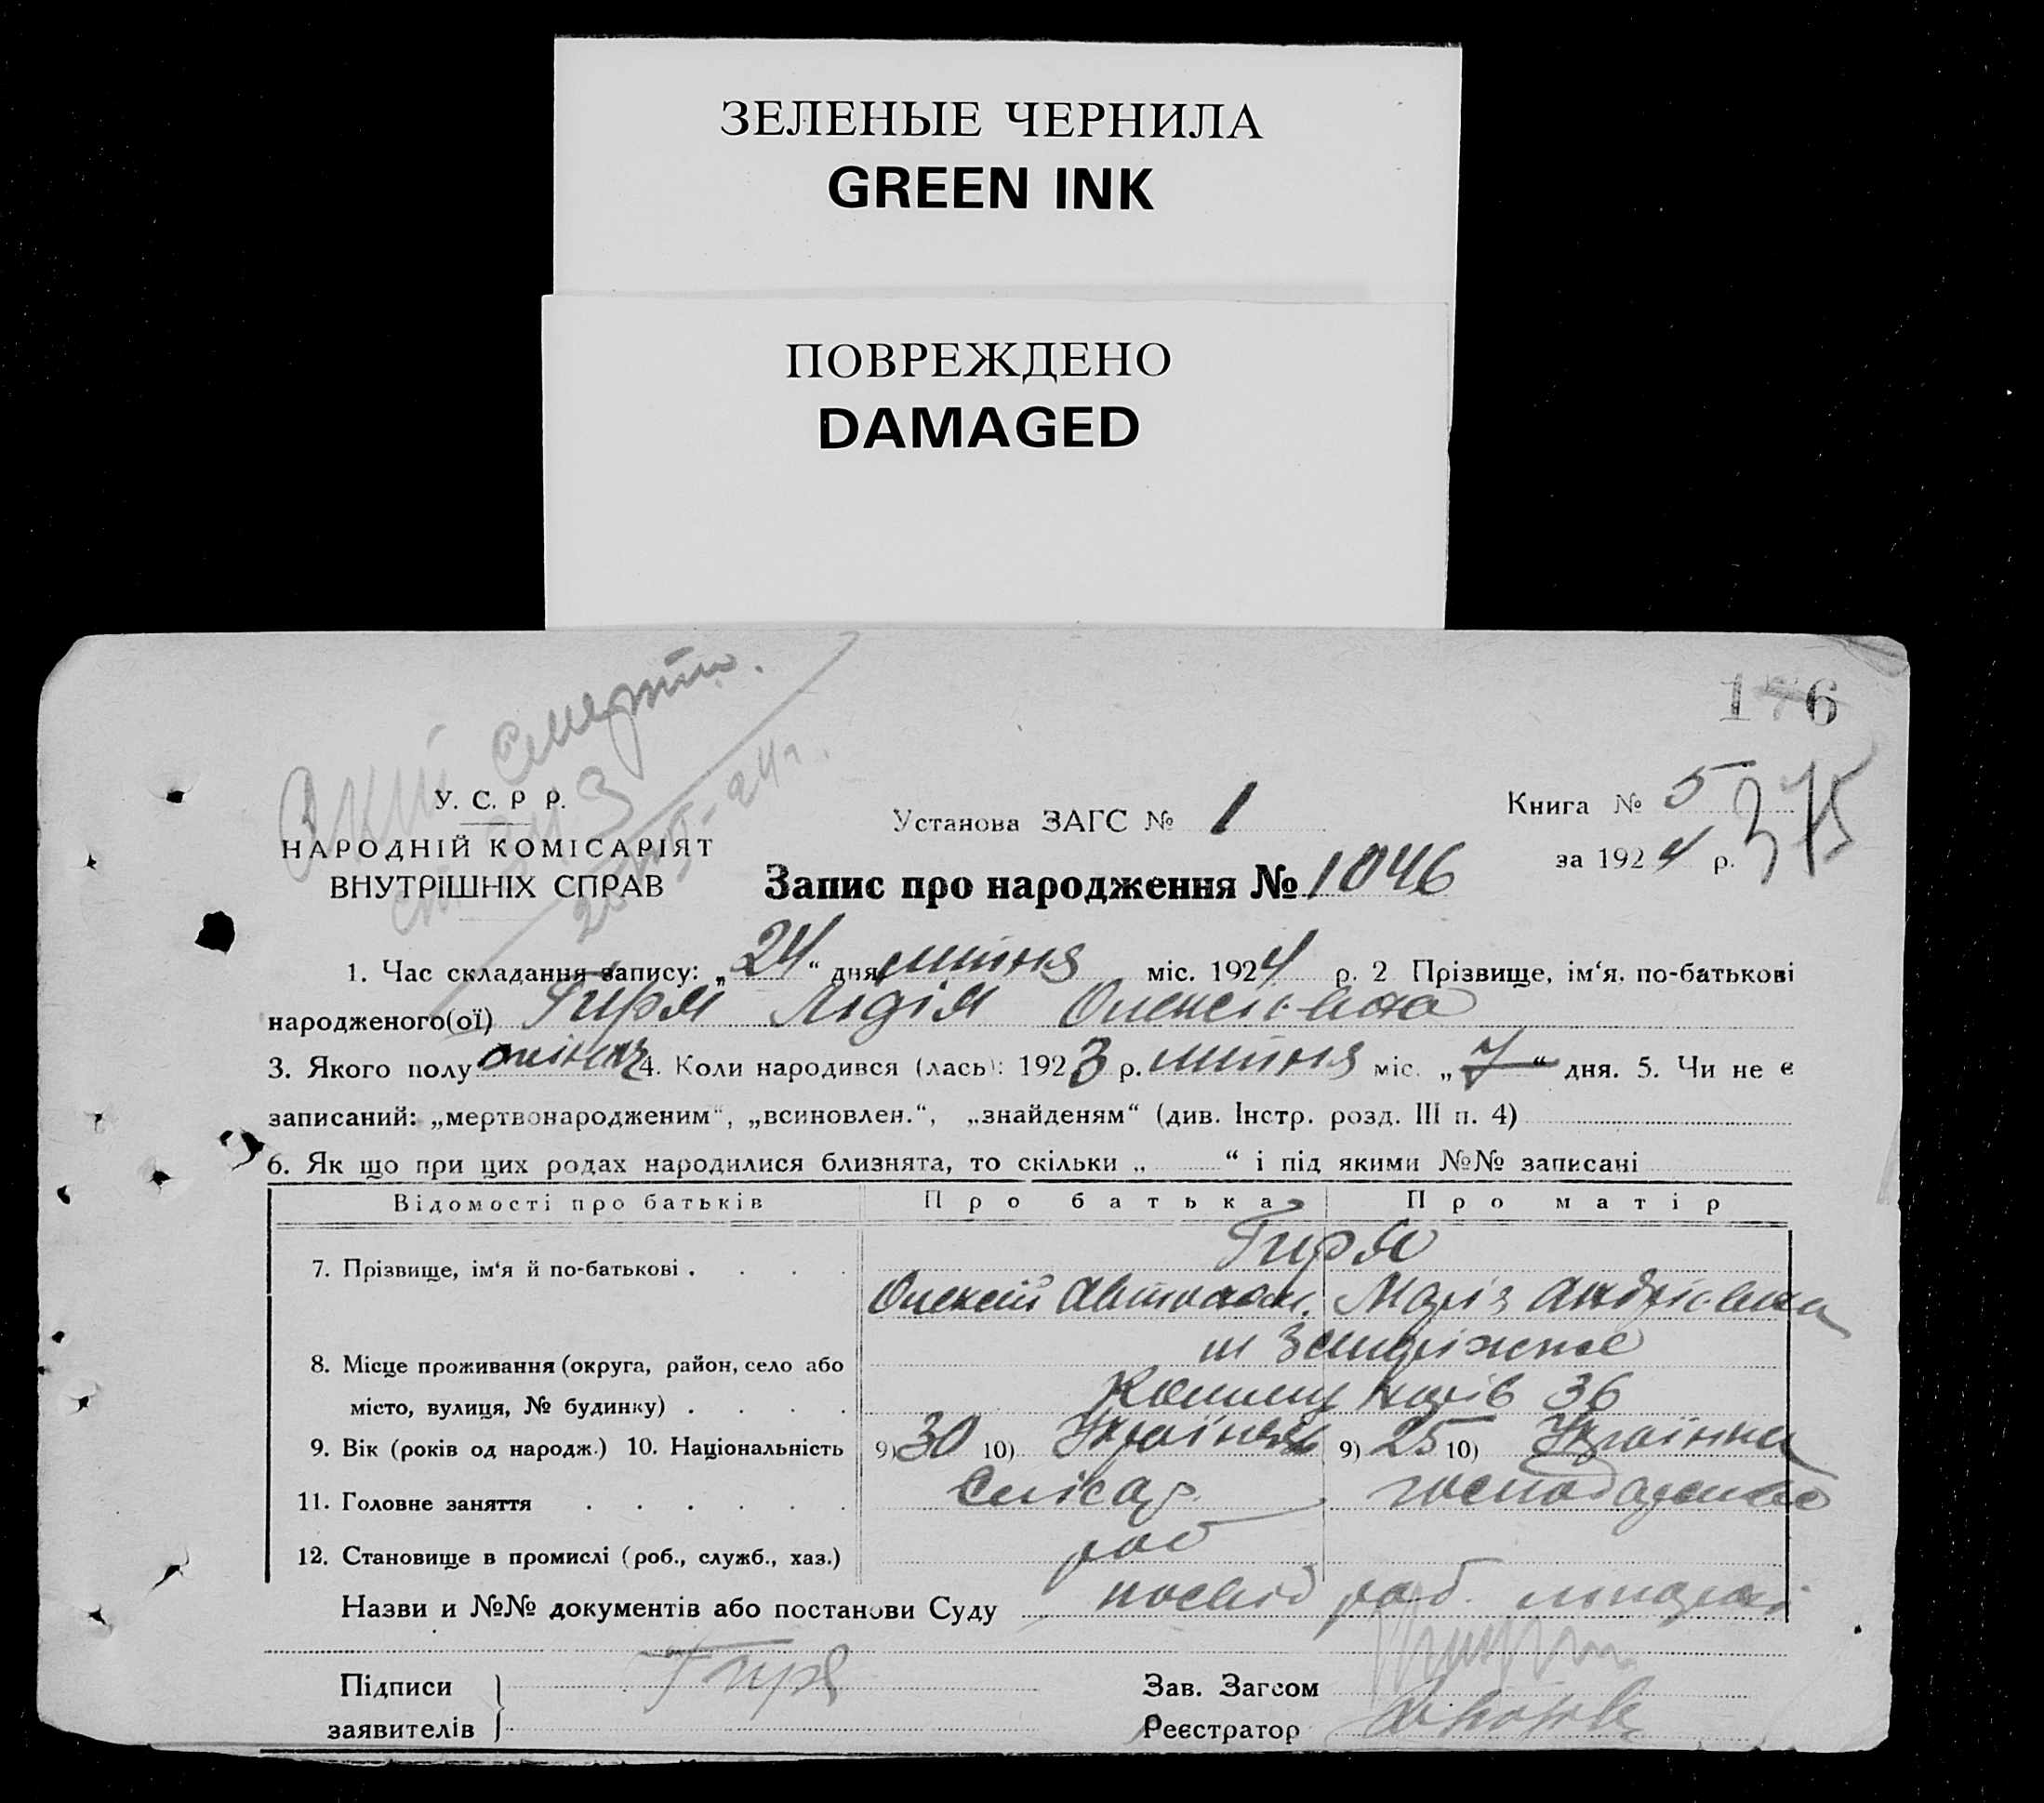 ЗЕЛЕНЫЕ ЧЕРНИЛА
GREEN INK
ПОВРЕЖДЕНО
DAMAGED
176
Акт смерти.
№ 3
24 г.
У. С. Р Р.
НАРОДНІЙ КОМІСАРІЯТ
ВНУТРІШНІХ СПРАВ
Установа ЗАГС № 1
Книга № 5
за 1924 р.
375
Запис про народження № 1046
1. Час складання запису: „24“ дня липня міс. 1924 р. 2 Прізвище, ім‘я, по-батькові
народженого(ої) Гиря Лідія Олексієвна
3. Якого полу жіноч 4. Коли народився (лась): 1923 р. липня міс. „7“ дня. 5. Чи не є
записаний: „мертвонародженим“, „всиновлен.“, „знайденям“ (див. Інстр. розд. III п. 4)
6. Як що при цих родах народилися близнята, то скільки „ “ і під якими №№ записані
Відомості про батьків Про батька Про матір
7. Прізвище, ім‘я й по-батькові . . . . Гиря
Олексій Автоном. Марія Андрієвна
8. Місце проживання (округа, район, село або м Запоріжжє
місто, вулиця, № будинку) . . . . Комунарів 36
9. Вік (років од народж.) 10. Національність 9) 30 10) Українець 9) 25 10) Українка
11. Головне заняття . . . . . . Слюсар господарство
12. Становище в промислі (роб., служб., хаз.) роб
Назви и №№ документів або постанови Суду посвід роб.
Підписи Гиря
заявителів
Зав. Загсом
Реєстратор